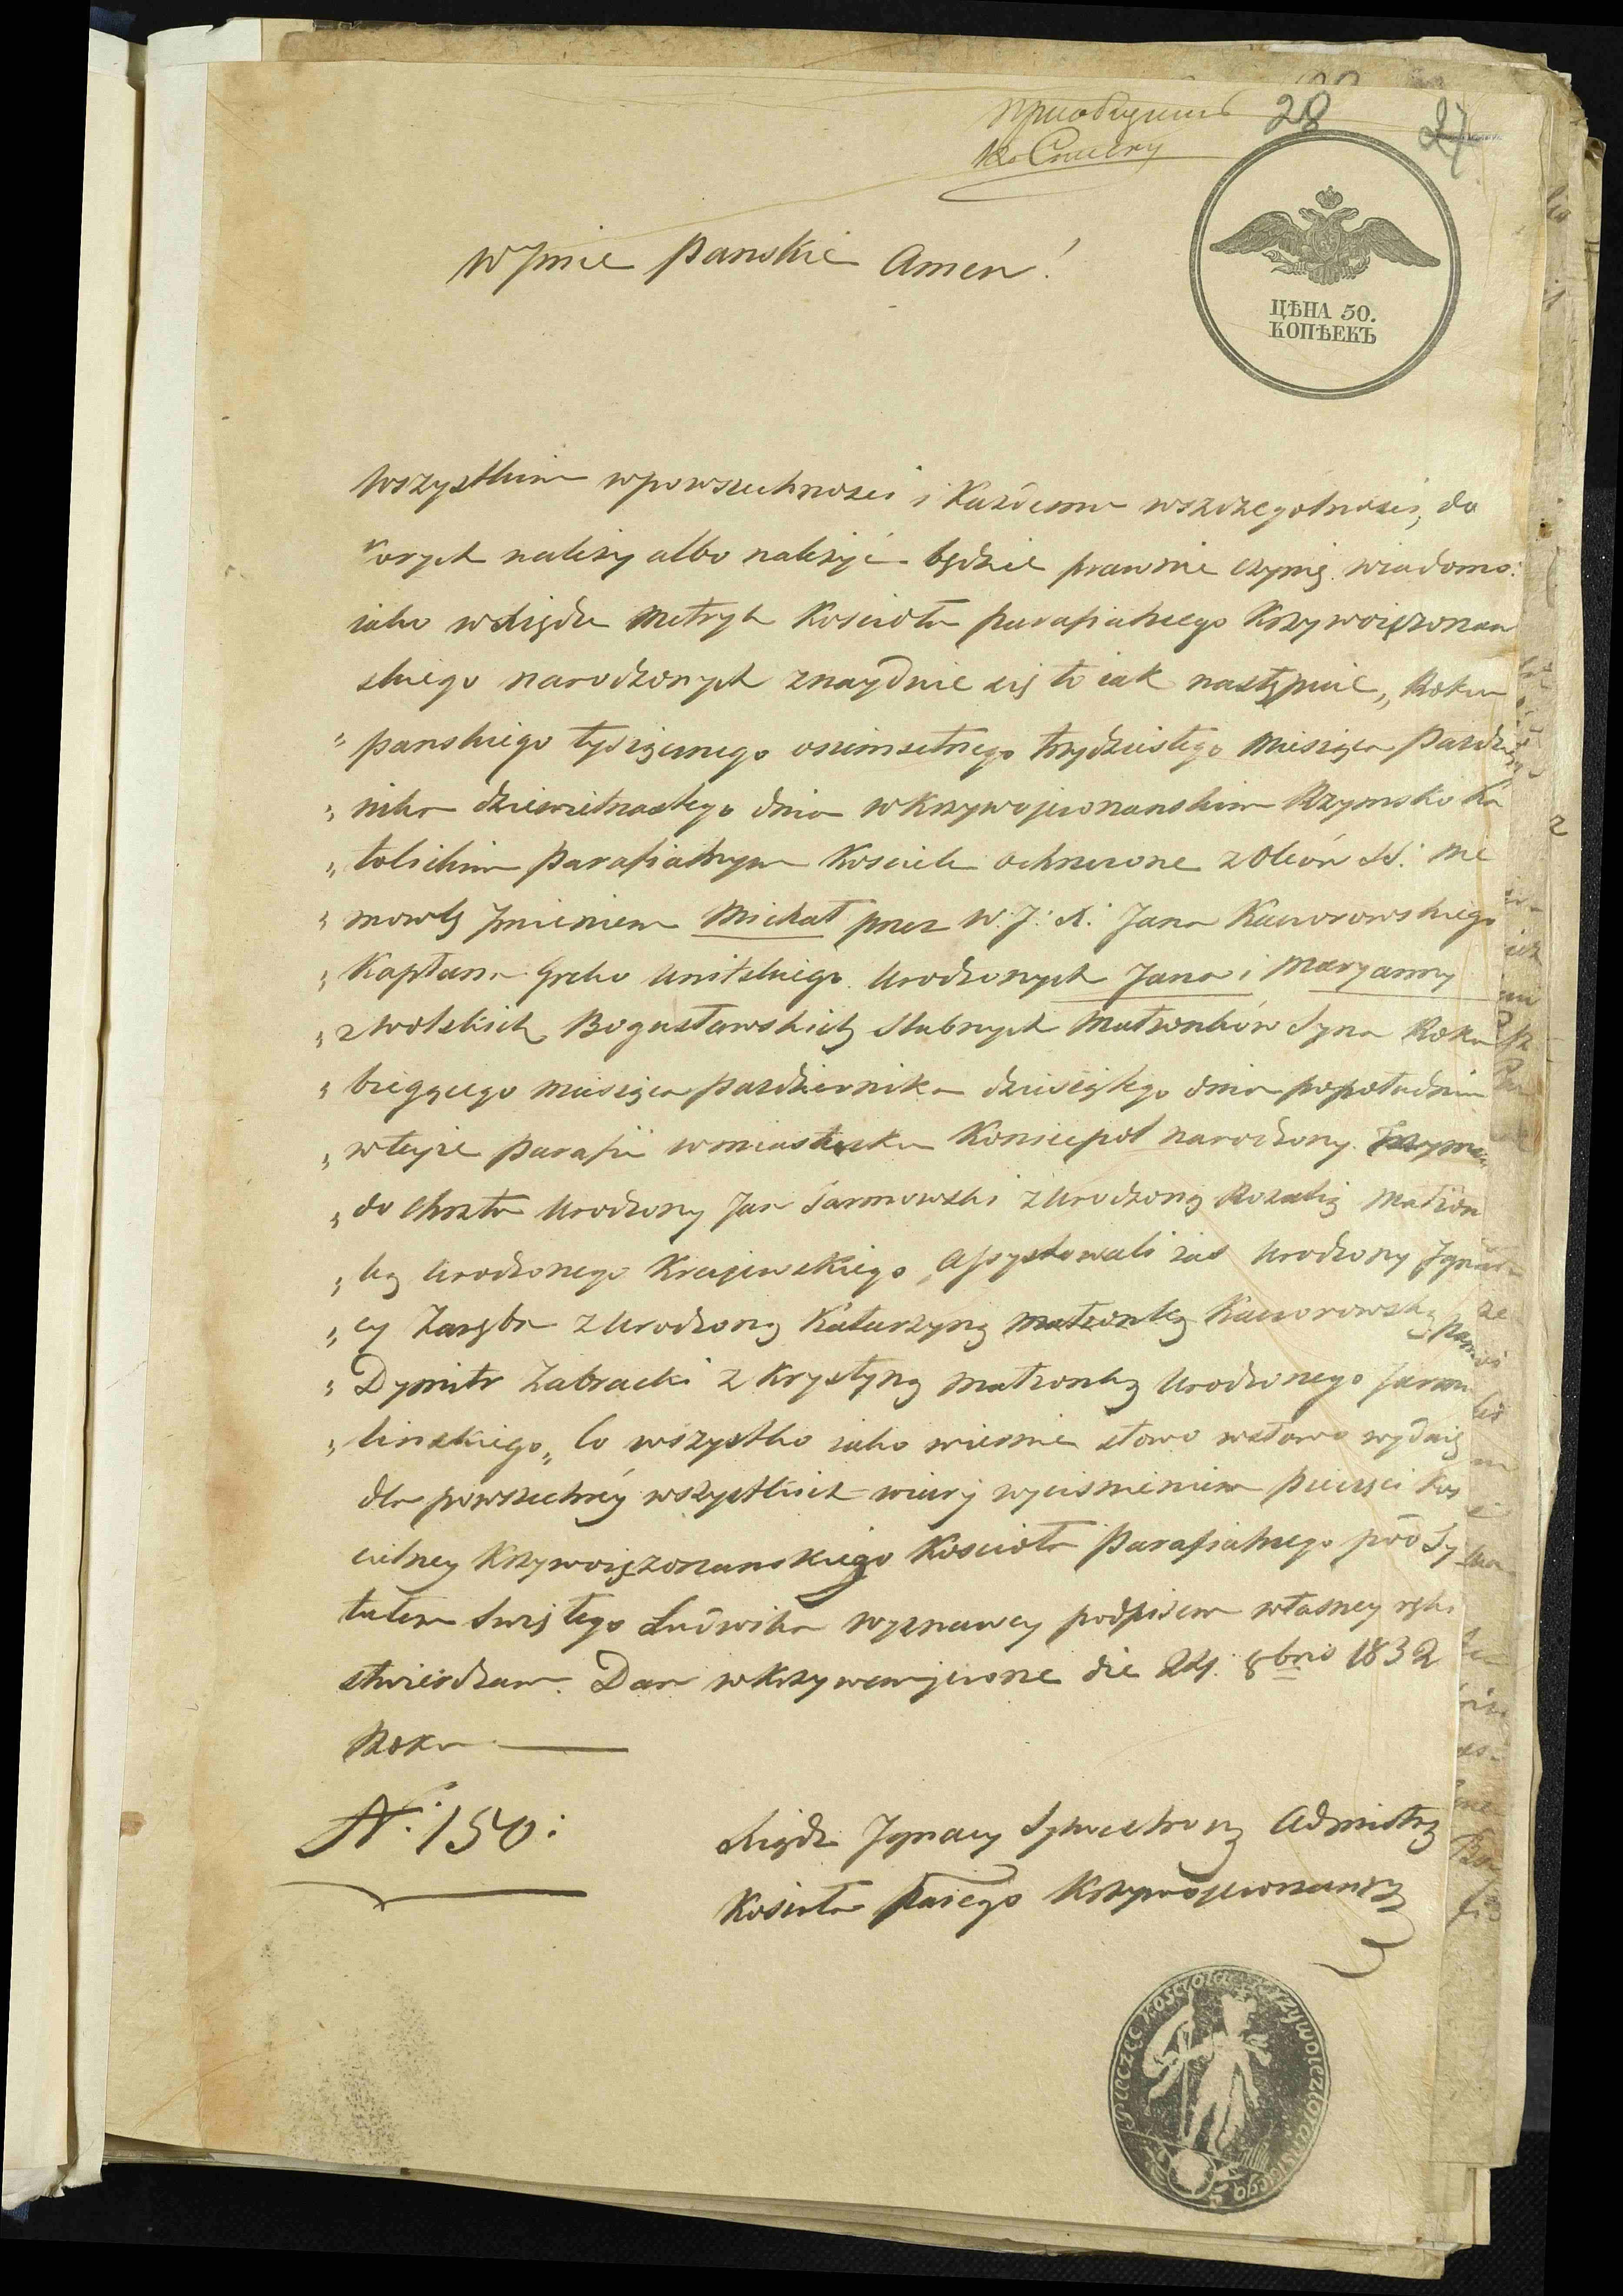 28
27
W Jmie Panskie Amen!
ЦѢНА 50.
КОПѢЕКЪ
Wszystkim wpowszechnosci i Każdemu wszczegolnosci, do
ktorych należy albo należyć będzie prawnie czynię wiadomo:
iako wksiędze Metryk Koscioła parafialnego Krzywoięzonan
skiego narodzonych znayduie się to iak następuie „ Roku
„ panskiego tysiącznego osimsetnego trzydziestego Miesiąca Pazdzier
„ nika dziewietnastego dnia w Krzywojezonanskim Rzymsko Ka
„ tolickim Parafialnym Kosciele ochrzczone z Oleów SS: Nie
„ mowlę Jmieniem Michał przez W: J: X: Jana Kaczorowskiego
„ Kapłana Greko Unitskiego Urodzonych Jana i Maryanny
„ z Wolskich Bogusławskich Slubnych Małżonków Syna Roku
„ bieżącego Miesiąca pazdziernika dziesiątego dnia popołudniu
„ wteyże Parafii wmiasteczku Koniecpol narodzony.
„ do Chrztu Urodzony Jan Sarnowski z Urodzoną Rozalią Małżon
„ ką Urodzonego Krajewskiego, Assystowali zas Urodzony Jgna
„ cy Zaręba z Urodzoną Katarzyną małżonką Kaczorowską
„ Dymitr Zabracki z Krystyną Małżonką Urodzonego Jarm
„ linskiego„ Co wszystko iako wiernie słowo wsłowo wydaię
dla powszechnéy wszystkich wiary wycisnieniem pieczęci Kos
cielney Krzywoięzonanskiego Koscioła Parafialnego pod Ty
tułem Swiętego Ludwika wyznawcy podpisem własney ręki
stwierdzam. Dan w Krzywemjezioze die 24. 8bris 1832
Roku
N: 150:
Xiądz Jgnacy Sylwestrowicz Admistr
Koscioła Parfiego Krzywojezonansk
Pieczęć Koscioła Krzywoiezionanskiego